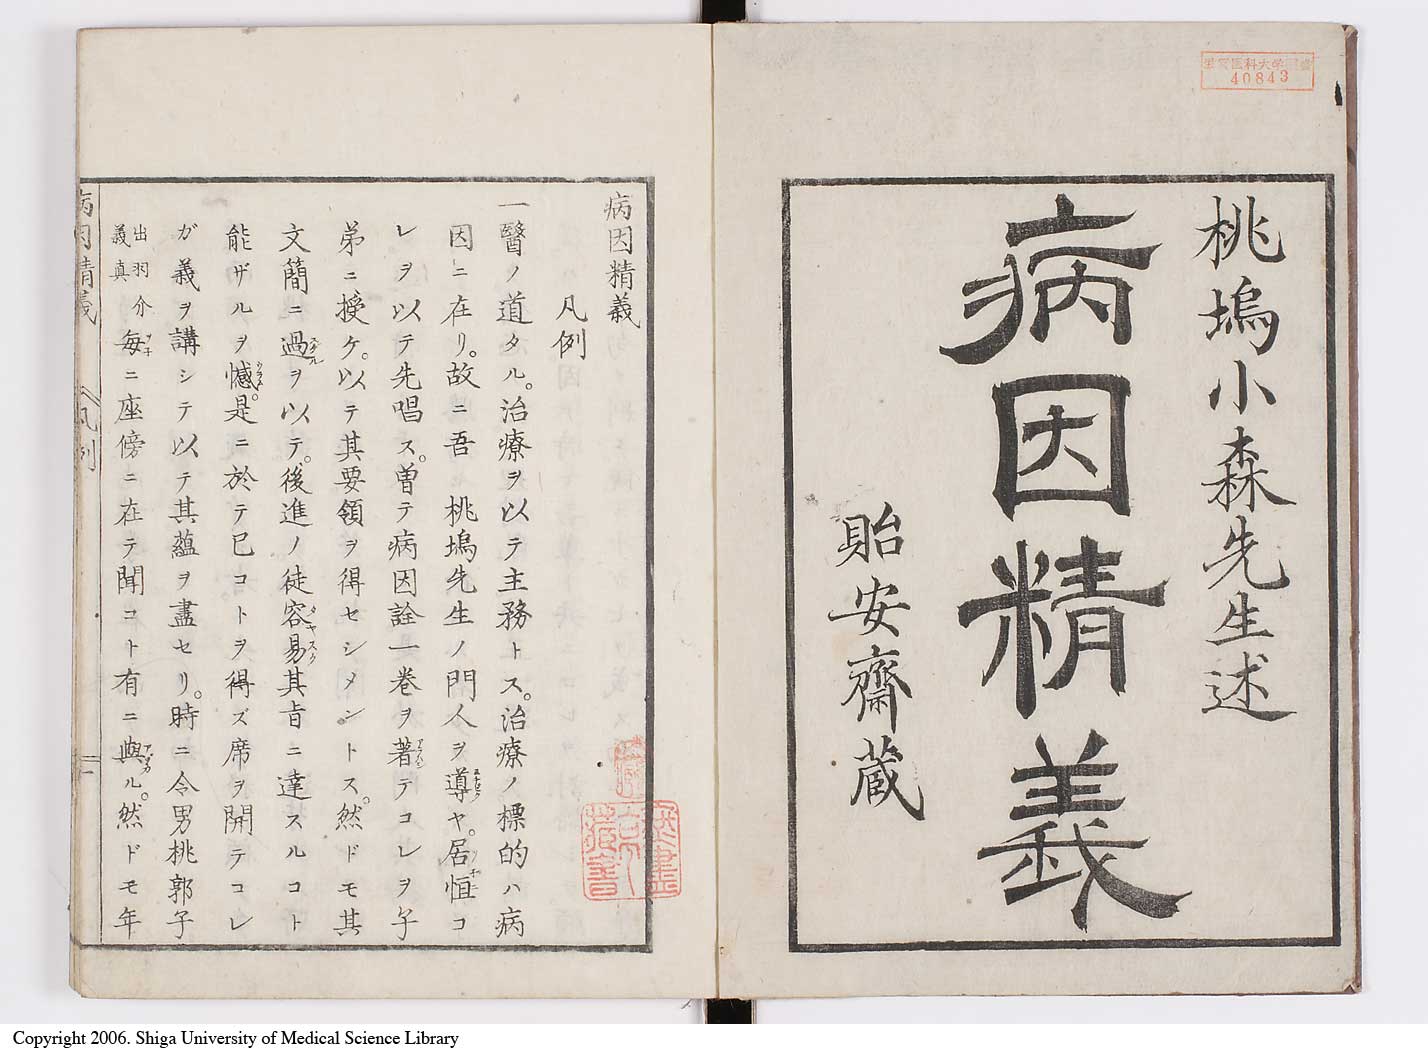 桃塢小森先生述
病因精義
貽安齋蔵
40843
病因精義
凡例
一醫ノ道タル。治療ヲ以テ主務トス。治療ノ標的ハ病
因ニ在リ。故ニ吾 桃塢先生ノ門人ヲ導ヤ。居恒コ
レヲ以テ先唱ス。曽テ病因詮一巻ヲ著テコレヲ子
弟ニ授ケ。以テ其要領ヲ得セシメントス。然ドモ其
文簡ニ過ヲ以テ。後進ノ徒容易其旨ニ達スルコト
能ザルヲ憾。是ニ於テ已コトヲ得ズ席ヲ開テコレ
ガ義ヲ講シテ以テ其蘊ヲ盡セリ。時ニ令男桃郭子
出羽介
義真
毎ニ座傍ニ在テ聞コト有ニ與ル。然ドモ年
病因精義
凡例
一
Copyright 2006. Shiga University of Medical Science Library